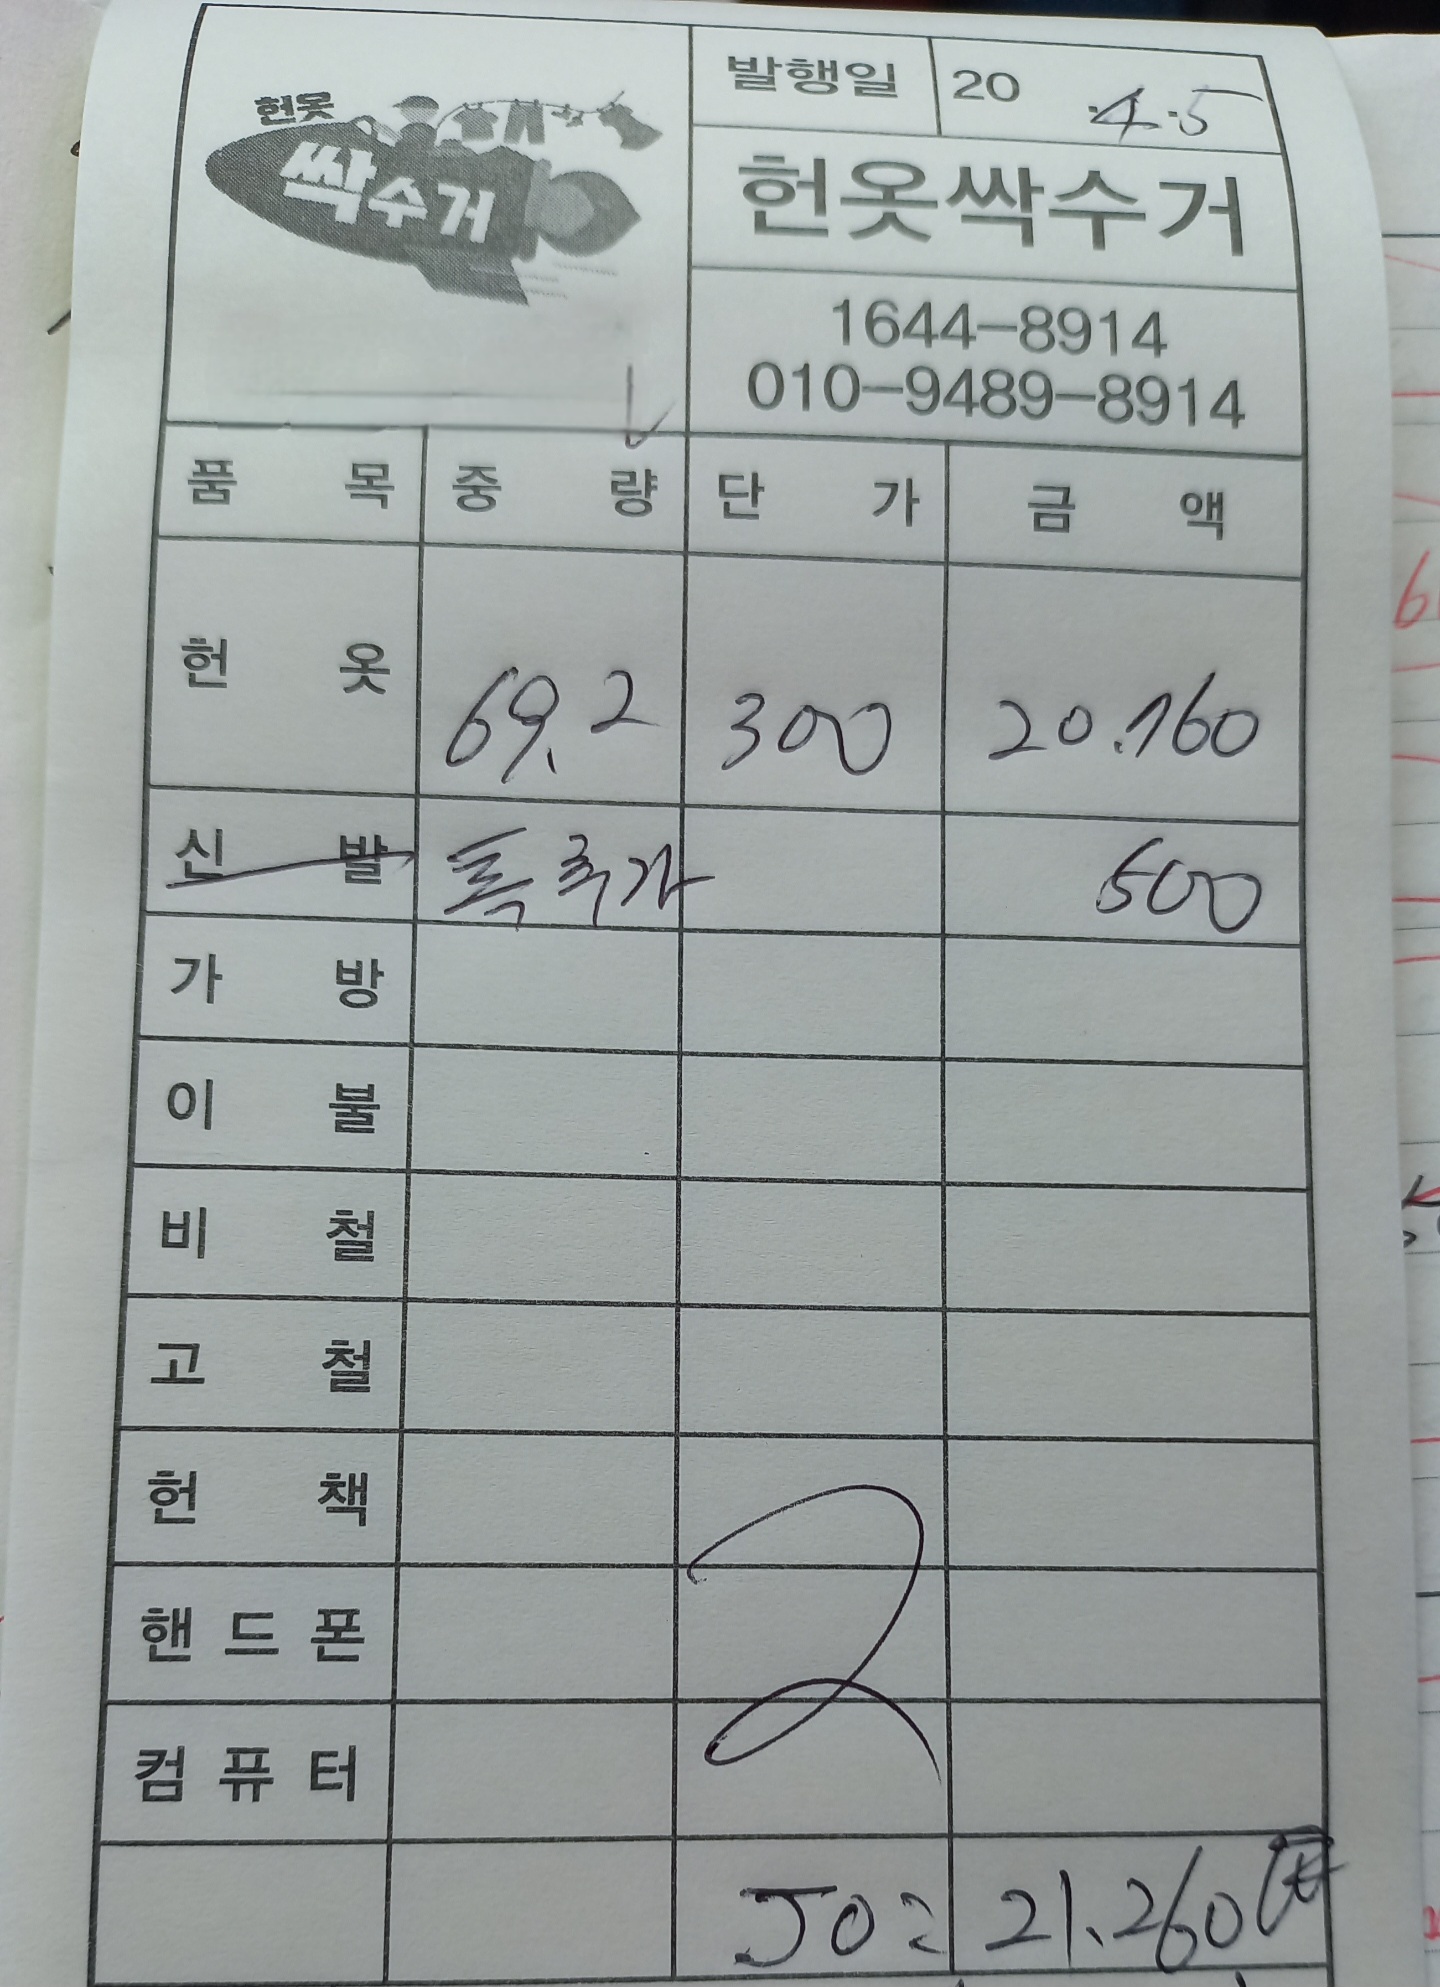 헌옷
싹수거
발행일 20 4.5
헌옷싹수거
1644-8914
010-9489-8914
품목 중량 단가 금액
헌옷 69.2 300 20.160
신발 500
가방
이불
비철
고철
헌책
핸드폰
컴퓨터
21.260